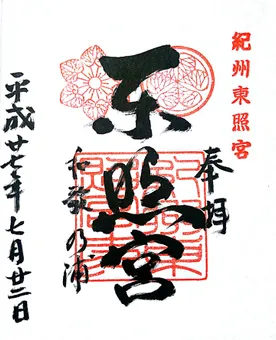 紀州東照宮
奉拝
东照宮
和歌乃浦
平成廿七年七月廿三日